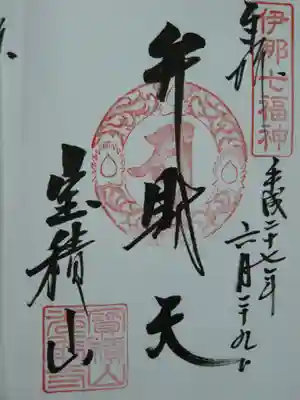 伊那七福神
奉拝
平成二十七年
六月二十九日
弁財天
宝積山